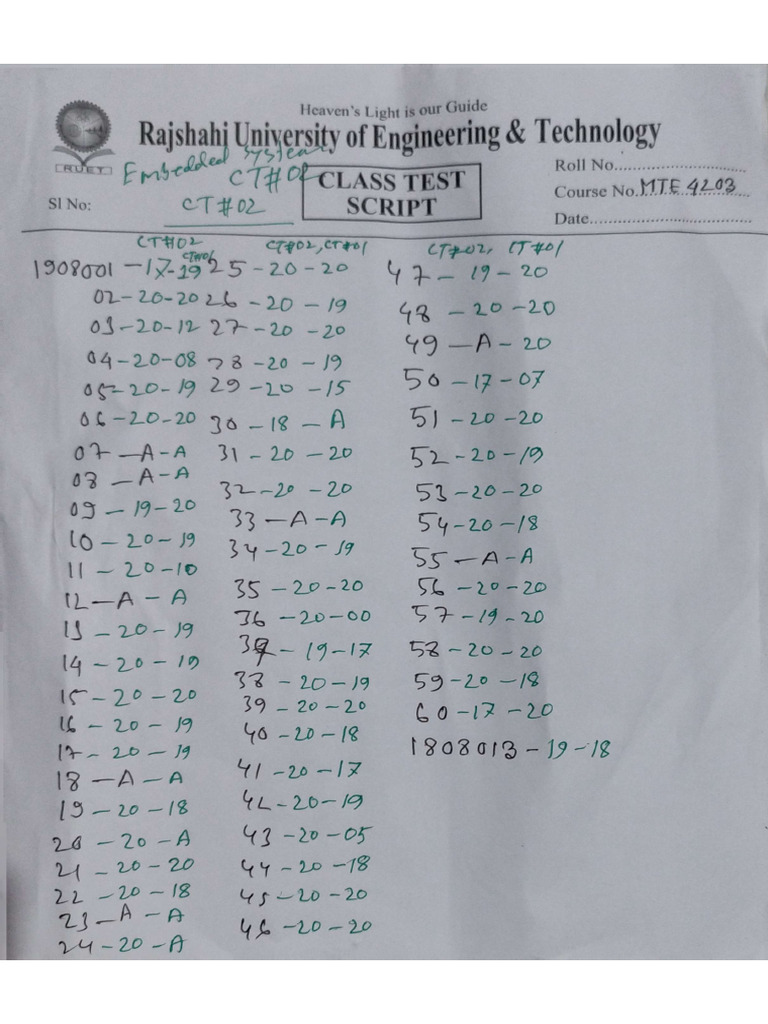 Heaven's Light is our Guide
Rajshahi University of Engineering & Technology
RUET
Embedded System
CT#02
CLASS TEST
SCRIPT
Roll No.
Course No. MTE 4203
Date
Sl No:
CT#02
CT#02 CT#01
1908001 - 17 - 19
02 - 20 - 20
03 - 20 - 12
04 - 20 - 08
05 - 20 - 19
06 - 20 - 20
07 - A - A
08 - A - A
09 - 19 - 20
10 - 20 - 19
11 - 20 - 10
12 - A - A
13 - 20 - 19
14 - 20 - 19
15 - 20 - 20
16 - 20 - 19
17 - 20 - 19
18 - A - A
19 - 20 - 18
20 - 20 - A
21 - 20 - 20
22 - 20 - 18
23 - A - A
24 - 20 - A
CT#02, CT#01
25 - 20 - 20
26 - 20 - 19
27 - 20 - 20
28 - 20 - 19
29 - 20 - 15
30 - 18 - A
31 - 20 - 20
32 - 20 - 20
33 - A - A
34 - 20 - 19
35 - 20 - 20
36 - 20 - 00
37 - 19 - 17
38 - 20 - 19
39 - 20 - 20
40 - 20 - 18
41 - 20 - 17
42 - 20 - 19
43 - 20 - 05
44 - 20 - 18
45 - 20 - 20
46 - 20 - 20
CT#02, CT#01
47 - 19 - 20
48 - 20 - 20
49 - A - 20
50 - 17 - 07
51 - 20 - 20
52 - 20 - 19
53 - 20 - 20
54 - 20 - 18
55 - A - A
56 - 20 - 20
57 - 19 - 20
58 - 20 - 20
59 - 20 - 18
60 - 17 - 20
1808013 - 19 - 18